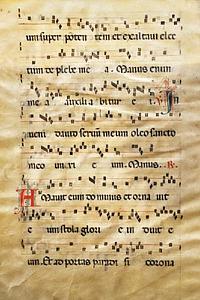 um super potentem et exaltaui elec
tum de plebe mea. Manus enim
mea auxiliabitur ei. I
nueni dauid seruū meum oleo sancto
meo unxi eum. Manus. R.
Amauit eum dominus et orna uit
eum stola glorie induit e
um. Et ad portas paradisi corona